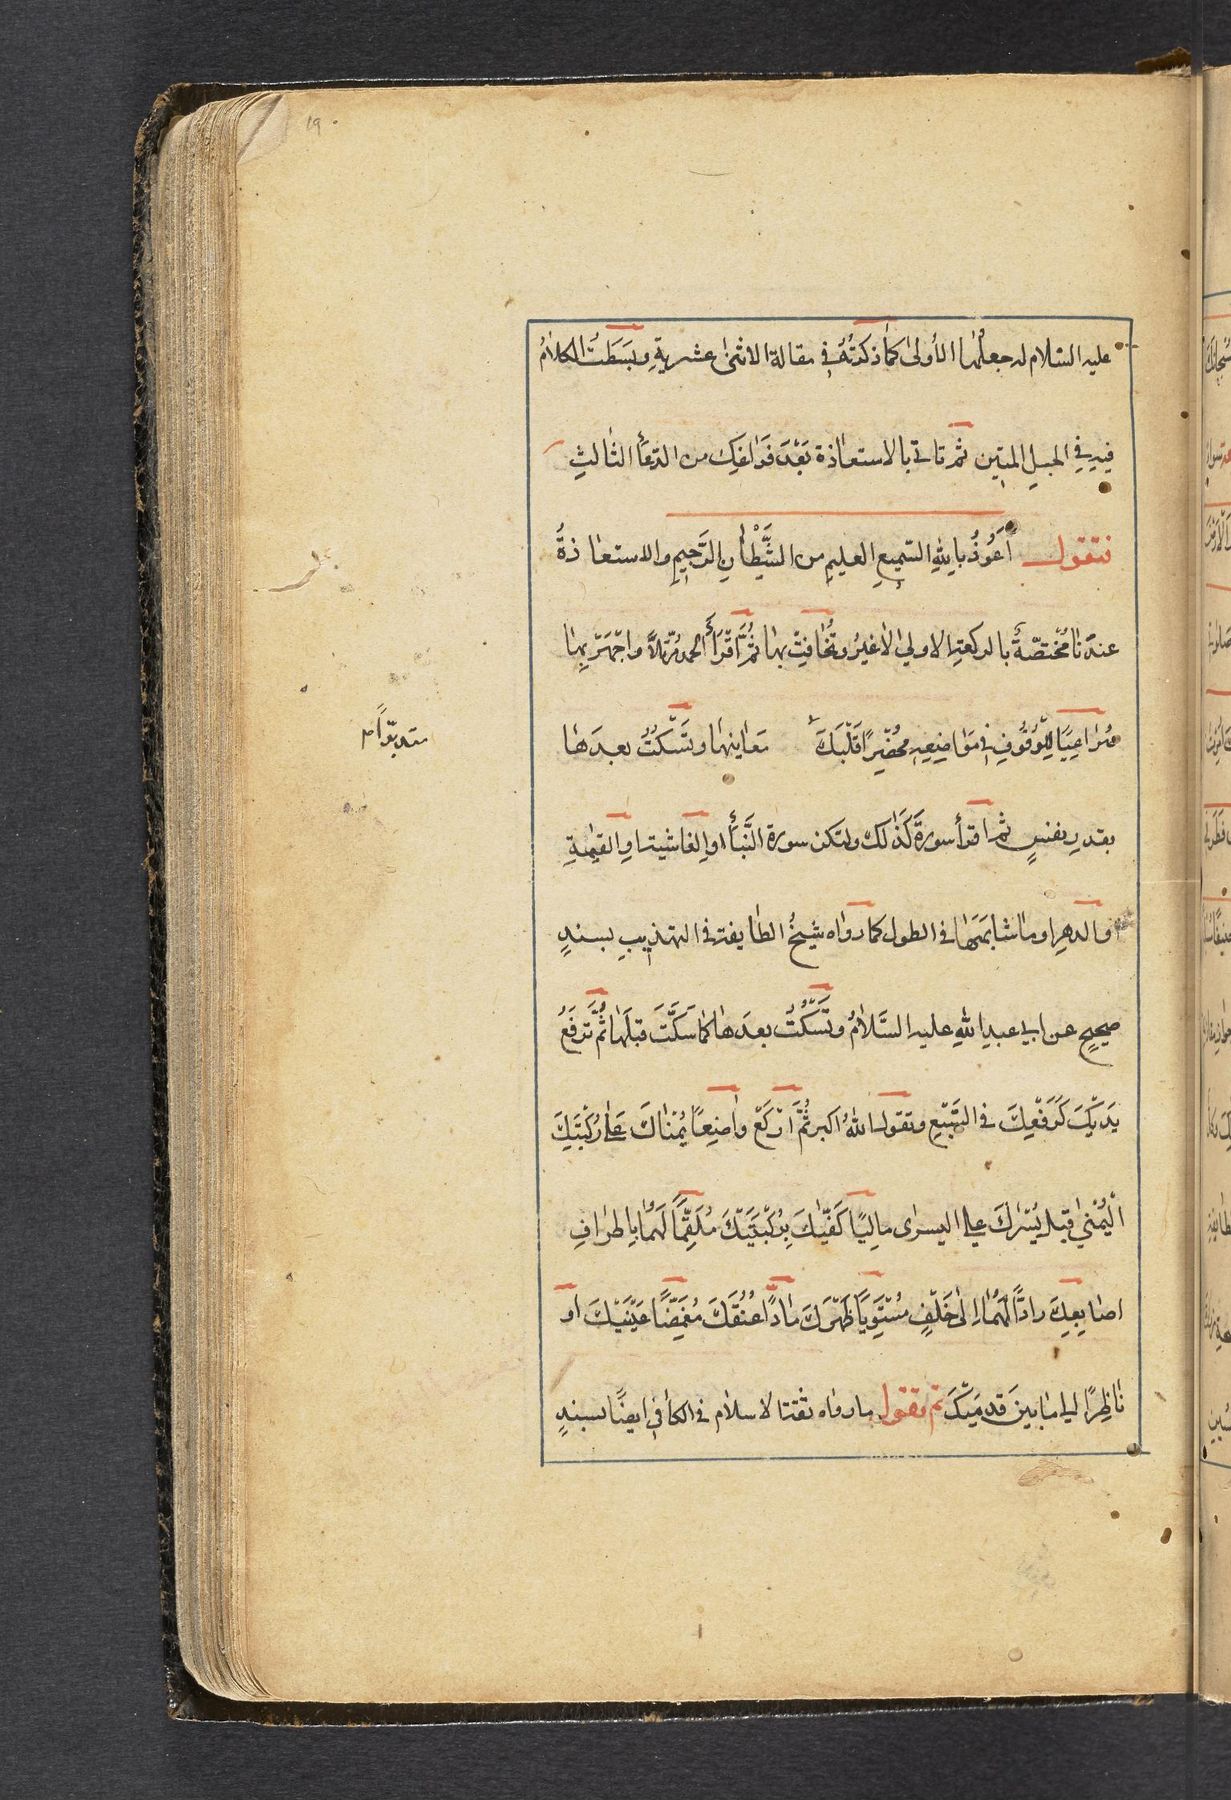 ١٩
عليه السّلام له جعلُها الأولىٰ كمَا ذكرتُهُ فِي مقالة الاثنىٰ عشريةِ وبَسَطتُ الكلامُ
فيهِ فِي الحبلِ المتين ثم تاتي بالاستعاذة بَعْدَ فَرَاغِكَ من الدّعأ الثالثِ
فتقول أَعُوْذُ بِاللهِ السّميعِ العليمِ من الشَّيْطَانِ الرَّجيمِ والاستعاذةُ
عندَنا مُخْتصّةٌ بالركعتِ الاولي لاغيرُ وتُخافِتْ بها ثُمَّ اقْرَأ الحمد مُرَتّلاً واجْهَرْ بِهَا
مُرَاعِيًا لِلْوُقُوفِ فِي مَوَاضِعِهِ مُحْضِرًا قَلْبَكَ مَعَانِيهَا وتَسْكُتُ بعدَها
متدبّرًا م
بقدرِ نفسٍ ثم اقرأ سورةً كَذَالكَ ولتكن سورة النَّبَأ اوِالغاشيتِ اوِ القيٰمةِ
اوالدهرِ او ما شابهَهَا فى الطول كما رواه شيخُ الطايفة فى التهذيبِ بسندٍ
صحيحٍ عن ابي عبدِ اللّٰهِ عليه السَّلامُ وتَسْكُتُ بعدَها كما سَكَتَّ قبلَهَا ثُمَّ تَرفَعُ
يَدَيْكَ كَرَفْعِكَ فى التَّتَبُّعِ وتقول اللهُ اكبر ثُمَّ ارْكَعْ واضِعًا يُمْنَاكَ عَلى رُكْبَتِكَ
الْيُمْنىٰ قبل يُسْراكَ على اليسرى مالِئًا كَفَّيْكَ بِرُكْبَتَيْكَ مُلَقِّمًا لَهُمَا باطرافِ
اصابِعِكَ رادًّا لَهُمَا الىٰ خَلْفٍ مُسْتَوِيًا ظَهْرَكَ مادًّا عُنُقَكَ مُغَمِّضًا عَيْنَيْكَ او
ناظِرًا الى ما بينَ قدمَيْكَ ثم تقول ما رواه ثقة الاسلام فى الكافي ايضًا بسندٍ